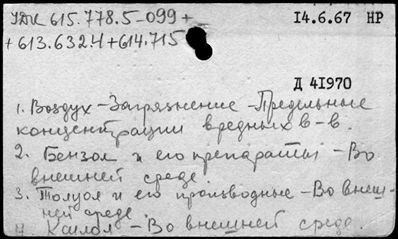 УДК 615.778.5-099+
14.6.67 НР
+613.632.4+614.715
Д 41970
1. Воздух - Загрязнение - Предельные
концентрации вредных в-в.
2. Бензол и его препараты - Во
внешней среде
3. Толуол и его производные - Во внеш-
ней среде
4. Ксилол - Во внешней среде.